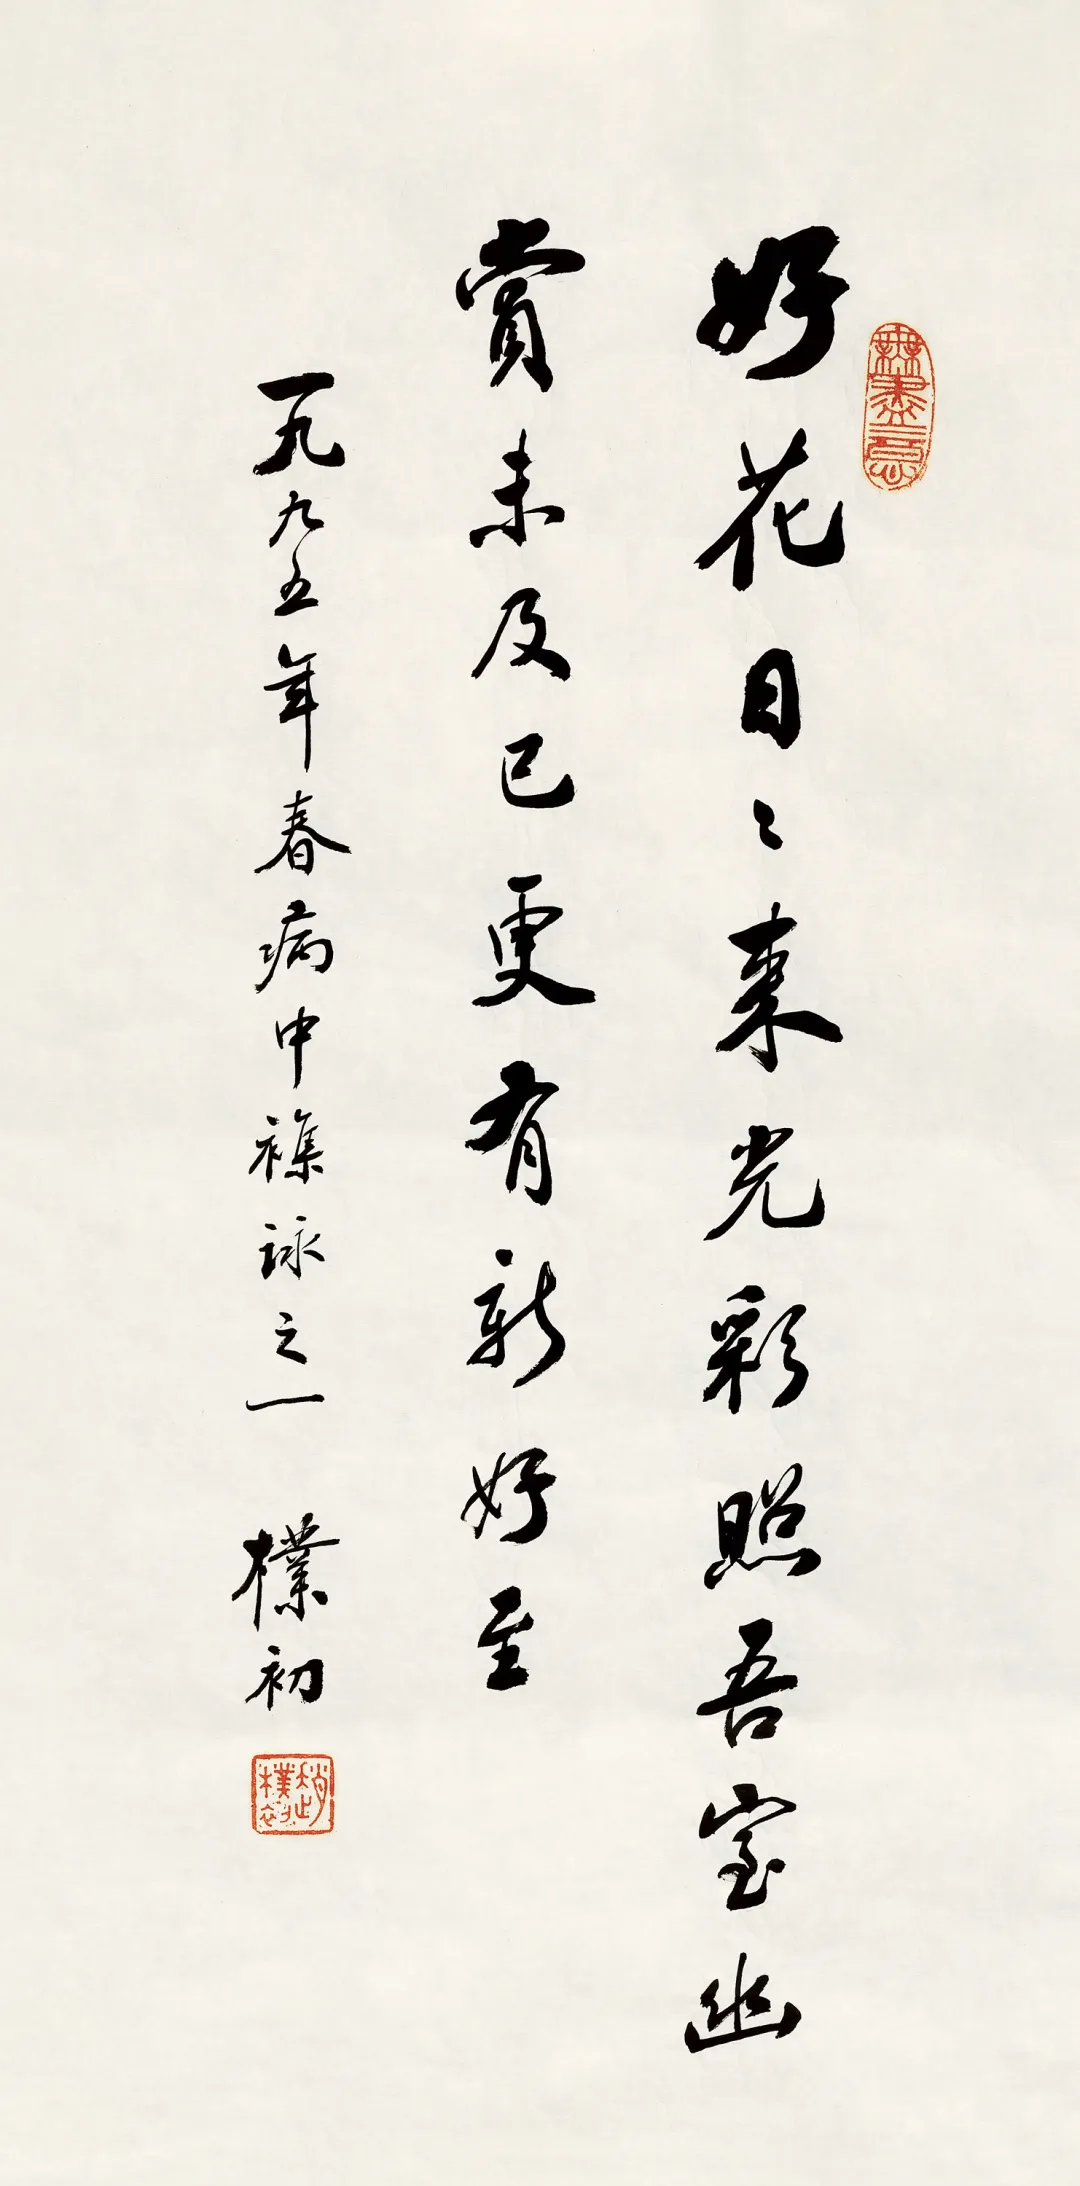 好花日〻来光彩照吾室幽
賞未及已更有新好至
一九九五年春病中襍詠之一 樸初
無盡意
趙樸初